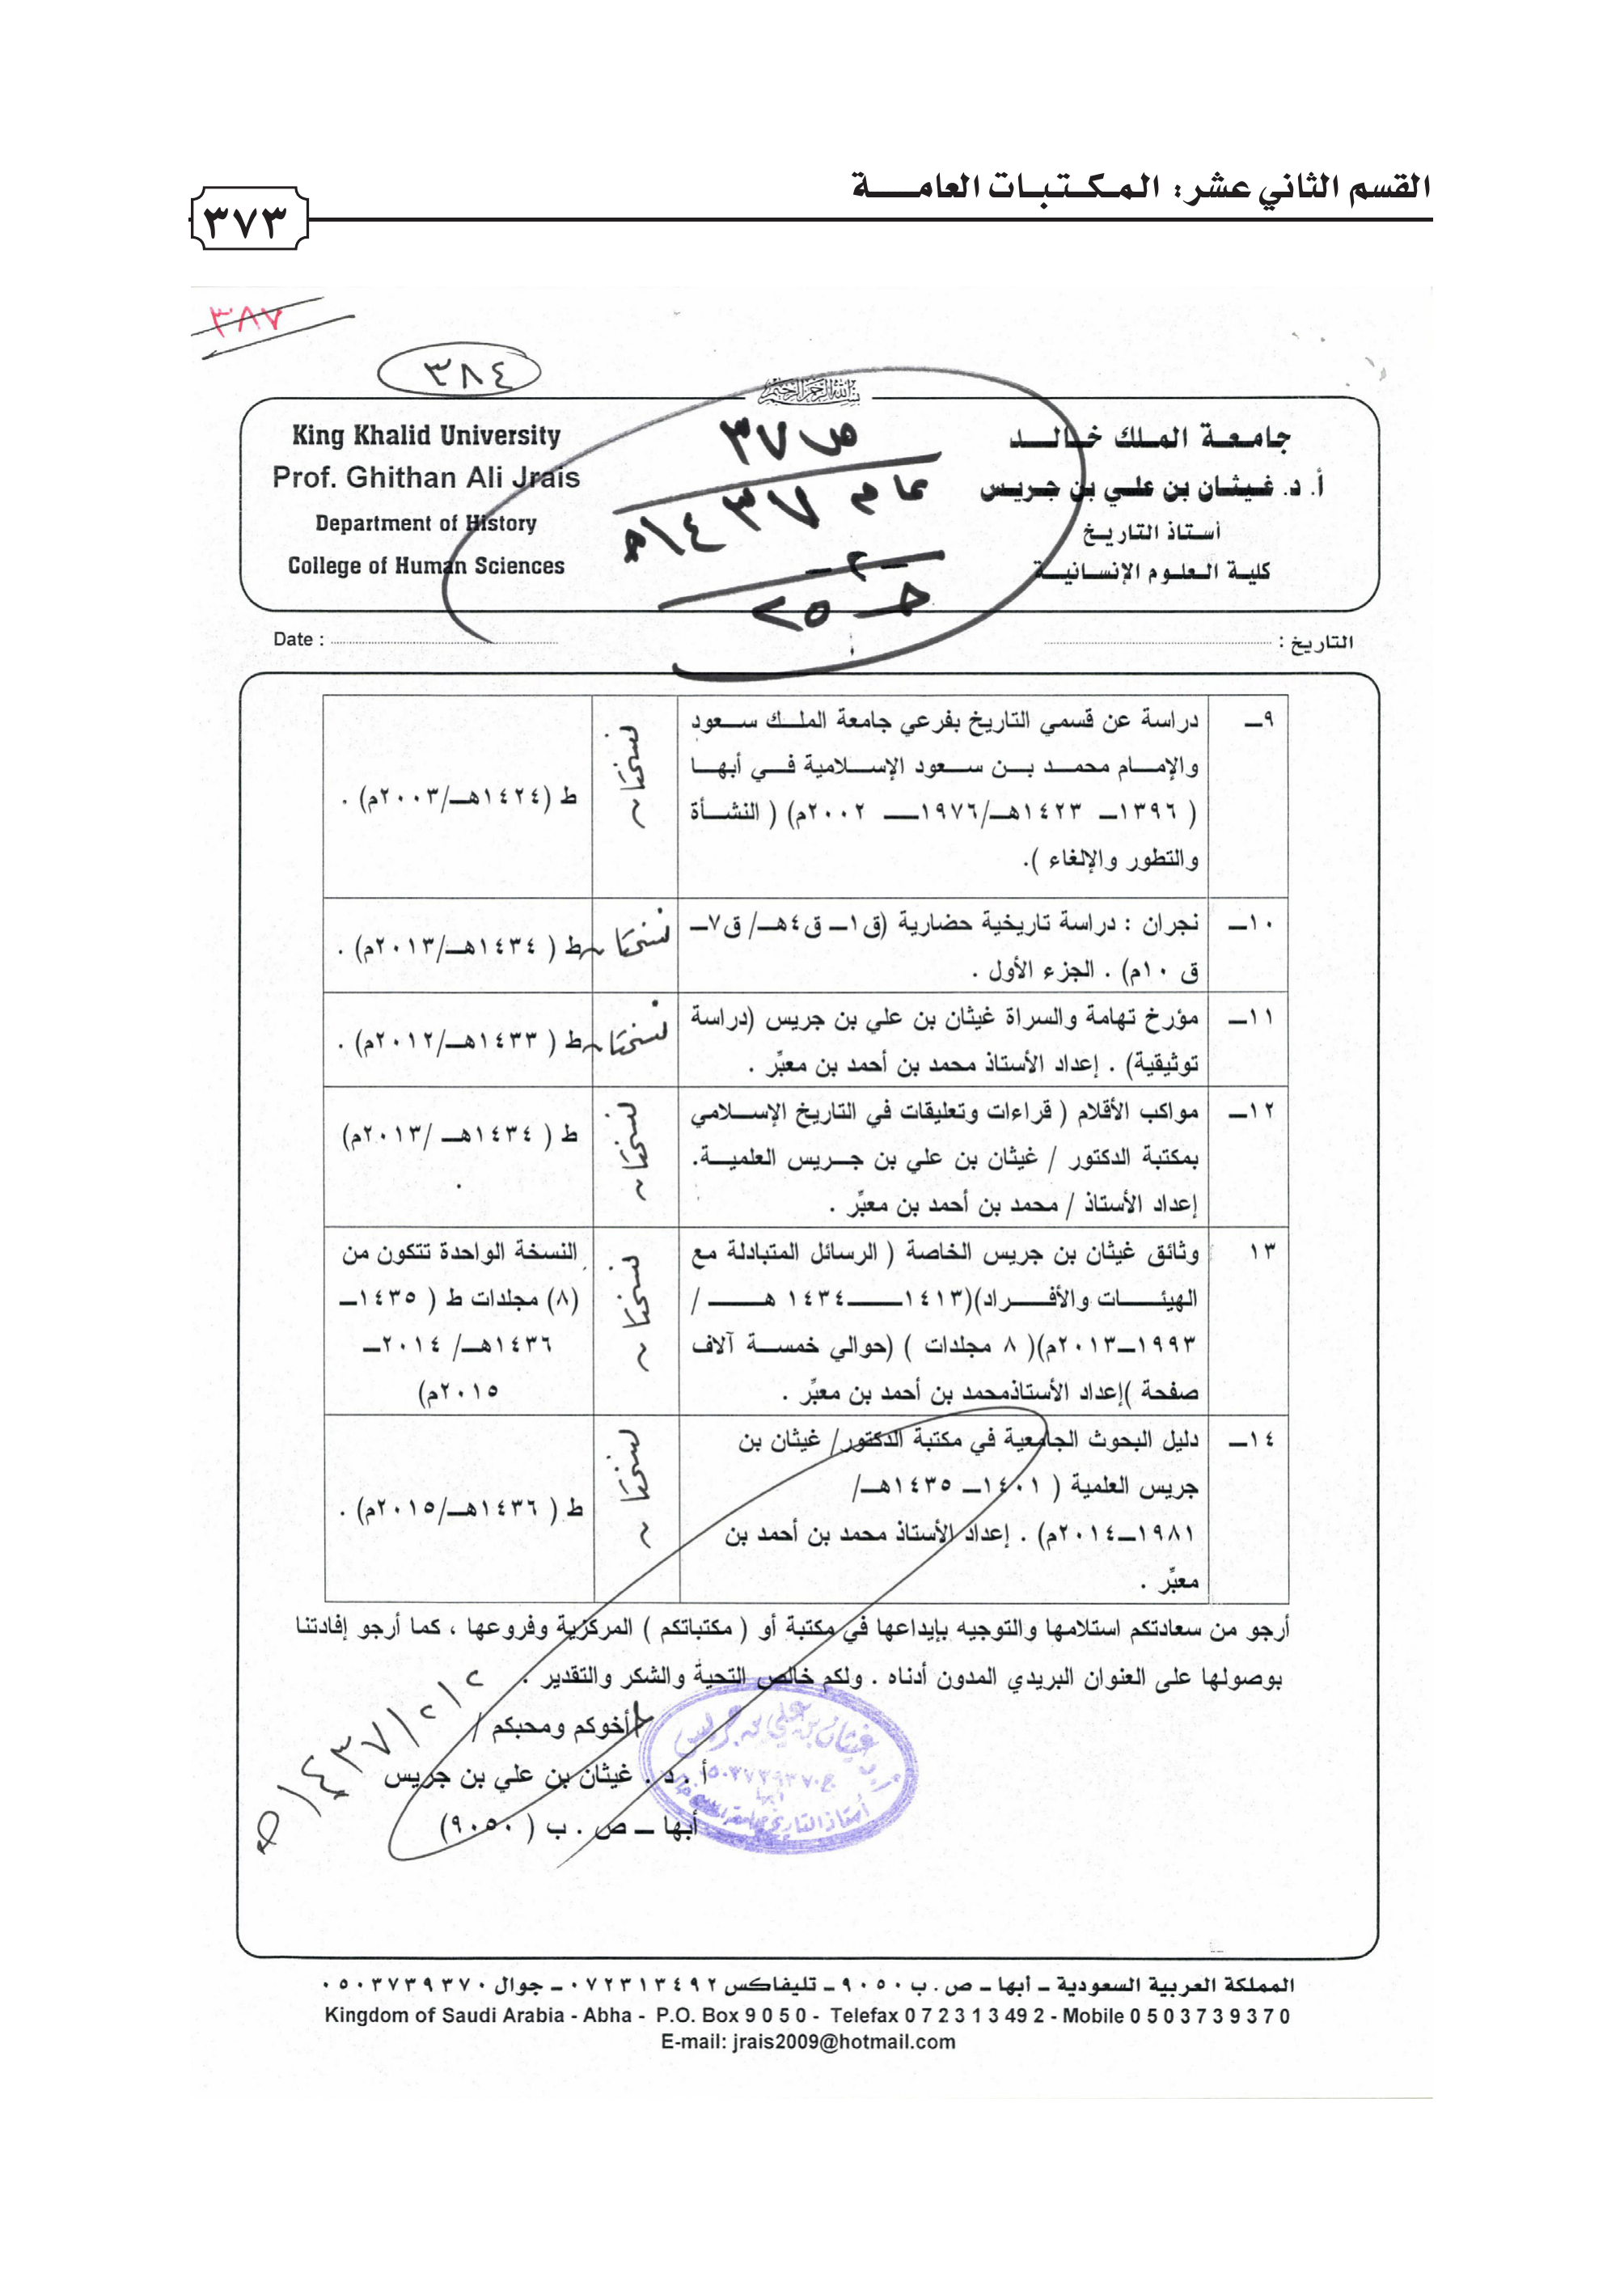 القسم الثاني عشر: المكتبات العامة
٣٧٣
٣٨٧
٣٨٤
بسم الله الرحمن الرحيم
جامعة الملك خالد
أ. د. غيثان بن علي بن جريس
أستاذ التاريخ
كلية العلوم الإنسانية
King Khalid University
Prof. Ghithan Ali Jrais
Department of History
College of Human Sciences
ص ٣٧
عام ١٤٣٧هـ
-٢-
التاريخ :
Date :
٩ــ دراسة عن قسمي التاريخ بفرعي جامعة الملك سعود
والإمام محمد بن سعود الإسلامية في أبها
( ١٣٩٦ــ ١٤٢٣هـ/١٩٧٦ــ ٢٠٠٢م) ( النشأة
والتطور والإلغاء ).
نسختان
ط (١٤٢٤هـ/٢٠٠٣م) .
١٠ــ نجران : دراسة تاريخية حضارية (ق١ــ ق٤هـ/ ق٧ــ
ق ١٠م) . الجزء الأول .
نسختان
ط ( ١٤٣٤هـ/٢٠١٣م) .
١١ــ مؤرخ تهامة والسراة غيثان بن علي بن جريس (دراسة
توثيقية) . إعداد الأستاذ محمد بن أحمد بن معبِّر .
نسختان
ط ( ١٤٣٣هـ/٢٠١٢م) .
١٢ــ مواكب الأقلام ( قراءات وتعليقات في التاريخ الإسلامي
بمكتبة الدكتور / غيثان بن علي بن جريس العلمية.
إعداد الأستاذ / محمد بن أحمد بن معبِّر .
نسختان
ط ( ١٤٣٤هـ /٢٠١٣م)
.
١٣ وثائق غيثان بن جريس الخاصة ( الرسائل المتبادلة مع
الهيئات والأفراد)(١٤١٣ــ١٤٣٤ هـ /
١٩٩٣ــ٢٠١٣م)( ٨ مجلدات ) (حوالي خمسة آلاف
صفحة )إعداد الأستاذمحمد بن أحمد بن معبِّر .
نسختان
النسخة الواحدة تتكون من
(٨) مجلدات ط ( ١٤٣٥ــ
١٤٣٦هـ/ ٢٠١٤ــ
٢٠١٥م)
١٤ــ دليل البحوث الجامعية في مكتبة الدكتور/ غيثان بن
جريس العلمية ( ١٤٠١ــ ١٤٣٥هـ/
١٩٨١ــ٢٠١٤م) . إعداد الأستاذ محمد بن أحمد بن
معبِّر .
نسختان
ط ( ١٤٣٦هـ/٢٠١٥م) .
أرجو من سعادتكم استلامها والتوجيه بإيداعها في مكتبة أو ( مكتباتكم ) المركزية وفروعها ، كما أرجو إفادتنا
بوصولها على العنوان البريدي المدون أدناه . ولكم خالص التحية والشكر والتقدير .
أخوكم ومحبكم /
أ . د . غيثان بن علي بن جريس
أبها ــ ص . ب ( ٩٠٥٠)
١٤٣٧/٢/٢هـ
غيثان بن علي بن جريس
أبها
المملكة العربية السعودية ــ أبها ــ ص . ب ٩٠٥٠ ــ تليفاكس ٠٧٢٣١٣٤٩٢ ــ جوال ٠٥٠٣٧٣٩٣٧٠
Kingdom of Saudi Arabia - Abha - P.O. Box 9 0 5 0 - Telefax 0 7 2 3 1 3 49 2 - Mobile 0 5 0 3 7 3 9 3 7 0
E-mail: jrais2009@hotmail.com